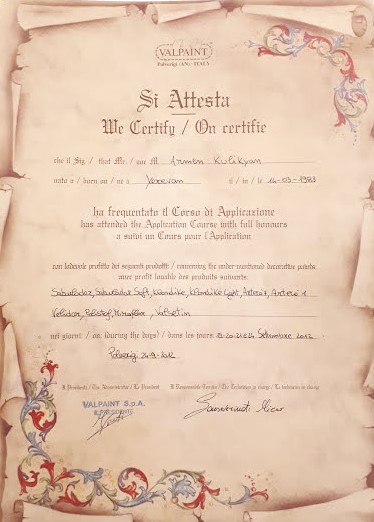 VALPAINT
Polverigi (AN) ITALY
Si Attesta
We Certify / On certifie
che il Sig. / that Mr. / que M. Armen Kulikyan
nato a / born on / né à Yerevan il / in / le 14-03-1983
ha frequentato il Corso di Applicazione
has attended the Application Course with full honours
a suivi un Cours pour l'Application
con lodevole profitto dei seguenti prodotti / concerning the under-mentioned decorative paints
avec profit louable des produits suivants
Sabulador, Sabulador Soft, Klondike, Klondike Light, Arteco 7, Arteco 1
Velidor, Polistof, Mirofior, Valsetin
nei giorni / on (during the days) / dans les jours Settembre 2012
Polverigi
Il Presidente / The Administrator / Le President
VALPAINT S.p.A.
IL PRESIDENTE